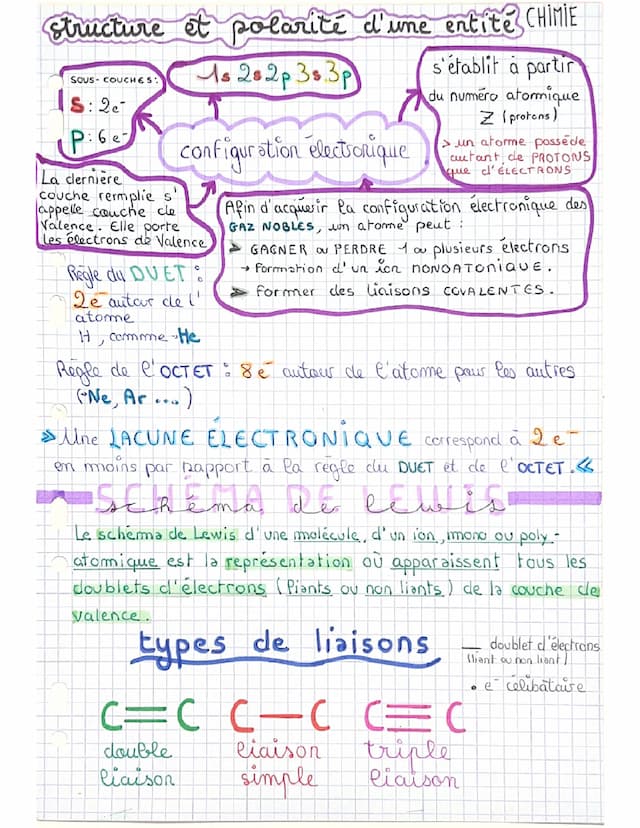 structure et polarité d'une entité CHIMIE
SOUS-COUCHES:
S: 2e⁻
P: 6 e⁻
1s 2s 2p 3s 3p
s'établit à partir
du numéro atomique
Z (protons)
> un atome possède
autant de PROTONS
que d'ÉLECTRONS
configuration électronique
La dernière
couche remplie s'
appelle couche de
Valence. Elle porte
les électrons de Valence
Afin d'acquérir la configuration électronique des
GAZ NOBLES, un atome peut :
➤ GAGNER ou PERDRE 1 ou plusieurs électrons
→ Formation d'un ion MONOATONIQUE.
➤ Former des liaisons COVALENTES.
Règle du DUET :
2e⁻ autour de l'
atome
H, comme →He
Règle de l'OCTET : 8 e⁻ autour de l'atome pour les autres
(→Ne, Ar ....)
» Une LACUNE ÉLECTRONIQUE correspond à 2 e⁻
en moins par rapport à la règle du DUET et de l'OCTET. «
SCHÉMA DE LEWIS
schéma de lewis
Le schéma de Lewis d'une molécule, d'un ion, mono ou poly-
atomique est la représentation où apparaissent tous les
doublets d'électrons (liants ou non liants) de la couche de
valence.
types de liaisons
— doublet d'électrons
(liant ou non liant)
• e⁻ célibataire
C=C C—C C≡C
double liaison triple
liaison simple liaison